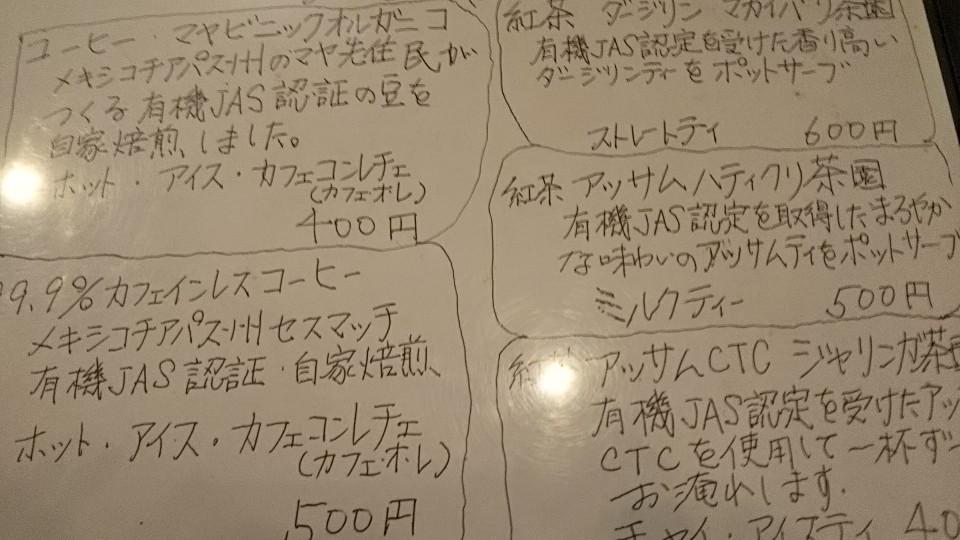 コーヒー・マヤビニックオルガニコ
メキシコチアパス州のマヤ先住民が
つくる有機JAS認証の豆を
自家焙煎しました。
ホット・アイス・カフェコンレチェ
(カフェオレ)
400円
9.9%カフェインレスコーヒー
メキシコチアパス州セスマッチ
有機JAS認証・自家焙煎
ホット・アイス・カフェコンレチェ
(カフェ・オレ)
500円
紅茶 ダージリン マカイバリ茶園
有機JAS認定を受けた香り高い
ダージリンティをポットサーブ
ストレートティ 600円
紅茶 アッサムハティクリ茶園
有機JAS認定を取得したまろやか
な味わいのアッサムティをポットサーブ
ミルクティー 500円
紅 アッサムCTC ジャリンガ茶園
有機JAS認定を受けたアッ
CTCを使用して一杯ず
お淹れします.
チャイ・アイスティ 40